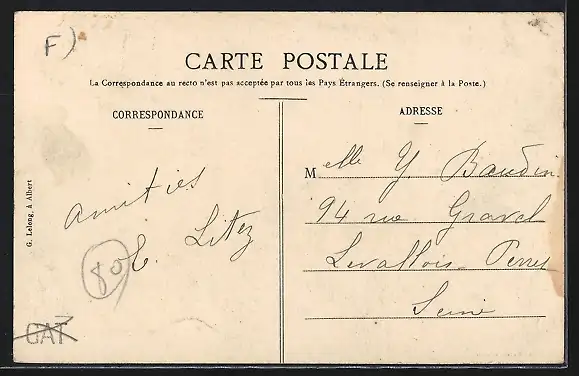 F)
CARTE POSTALE
La Correspondance au recto n'est pas acceptée par tous les Pays Étrangers. (Se renseigner à la Poste.)
CORRESPONDANCE
amitiés
E. Litez
80
G. Lelong, à Albert
GAT
ADRESSE
Melle Y. Baudin
94 rue Gravel
Levallois-Perret
Seine